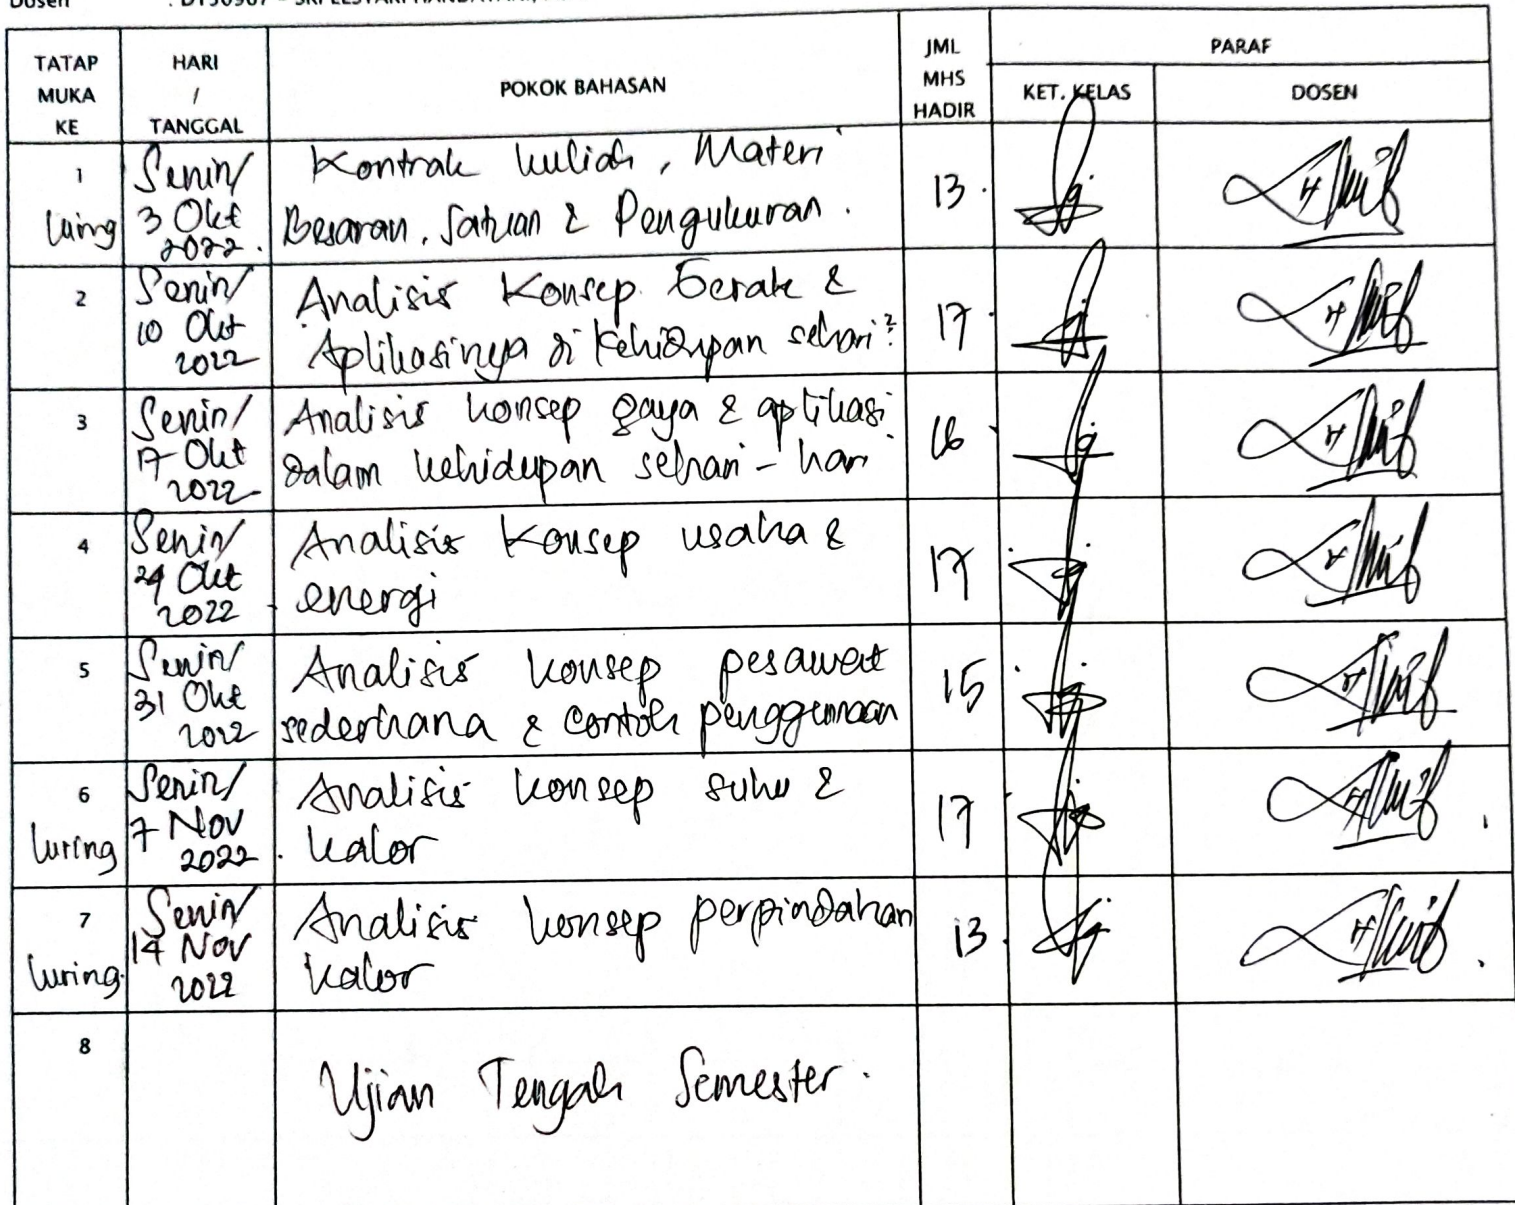 Dosen
TATAP MUKA KE
HARI / TANGGAL
POKOK BAHASAN
JML MHS HADIR
PARAF
KET. KELAS
DOSEN
1
luring
Senin/
3 Okt
2022.
Kontrak kuliah, Materi
Besaran, Satuan & Pengukuran.
13
2
Senin/
10 Okt
2022
Analisis Konsep Gerak &
Aplikasinya di Kehidupan sehari²
17
3
Senin/
17 Okt
2022
Analisis konsep gaya & aplikasi
dalam kehidupan sehari-hari
16
4
Senin/
24 Okt
2022
Analisis Konsep usaha &
energi
17
5
Senin/
31 Okt
2022
Analisis konsep pesawat
sederhana & contoh penggunaan
15
6
luring
Senin/
7 Nov
2022
Analisis konsep suhu &
kalor
17
7
luring
Senin/
14 Nov
2022
Analisis konsep perpindahan
kalor
13
8
Ujian Tengah Semester.